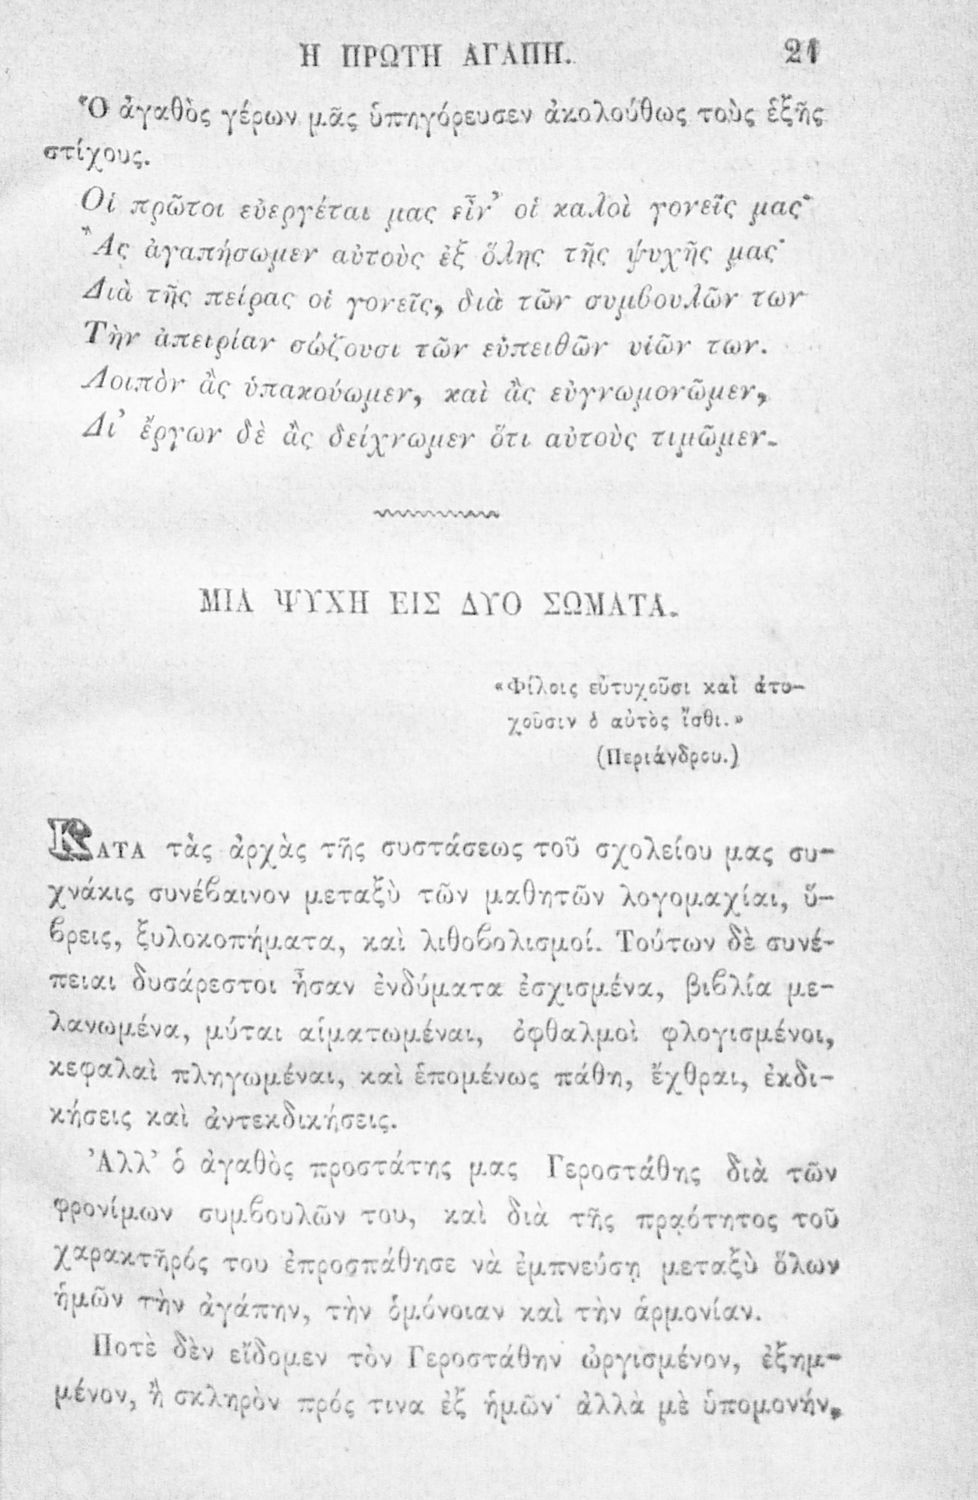 Η ΠΡΩΤΗ ΑΓΑΠΗ. 21
Ὁ ἀγαθὸς γέρων μᾶς ὑπηγόρευσεν ἀκολούθως τοὺς ἑξῆς
στίχους.
Οἱ πρῶτοι εὐεργέται μας εἶν’ οἱ καλοὶ γονεῖς μας·
Ἂς ἀγαπήσωμεν αὐτοὺς ἐξ ὅλης τῆς ψυχῆς μας·
Διὰ τῆς πείρας οἱ γονεῖς, διὰ τῶν συμβουλῶν των
Τὴν ἀπειρίαν σώζουσι τῶν εὐπειθῶν υἱῶν των.
Λοιπὸν ἂς ὑπακούωμεν, καὶ ἂς εὐγνωμονῶμεν,
Δι’ ἔργων δὲ ἂς δείχνωμεν ὅτι αὐτοὺς τιμῶμεν.
ΜΙΑ ΨΥΧΗ ΕΙΣ ΔΥΟ ΣΩΜΑΤΑ.
«Φίλοις εὐτυχοῦσι καὶ ἀτυ-
χοῦσιν ὁ αὐτὸς ἴσθι.»
(Περιάνδρου.)
ΚΑΤΑ τὰς ἀρχὰς τῆς συστάσεως τοῦ σχολείου μας συ-
χνάκις συνέβαινον μεταξὺ τῶν μαθητῶν λογομαχίαι, ὕ-
βρεις, ξυλοκοπήματα, καὶ λιθοβολισμοί. Τούτων δὲ συνέ-
πειαι δυσάρεστοι ἦσαν ἐνδύματα ἐσχισμένα, βιβλία με-
λανωμένα, μύται αἱματωμέναι, ὀφθαλμοὶ φλογισμένοι,
κεφαλαὶ πληγωμέναι, καὶ ἑπομένως πάθη, ἔχθραι, ἐκδι-
κήσεις καὶ ἀντεκδικήσεις.
Ἀλλ’ ὁ ἀγαθὸς προστάτης μας Γεροστάθης διὰ τῶν
φρονίμων συμβουλῶν του, καὶ διὰ τῆς πρᾳότητος τοῦ
χαρακτῆρός του ἐπροσπάθησε νὰ ἐμπνεύσῃ μεταξὺ ὅλων
ἡμῶν τὴν ἀγάπην, τὴν ὁμόνοιαν καὶ τὴν ἁρμονίαν.
Ποτὲ δὲν εἴδομεν τὸν Γεροστάθην ὠργισμένον, ἐξημ-
μένον, ἢ σκληρὸν πρός τινα ἐξ ἡμῶν· ἀλλὰ μὲ ὑπομονήν,